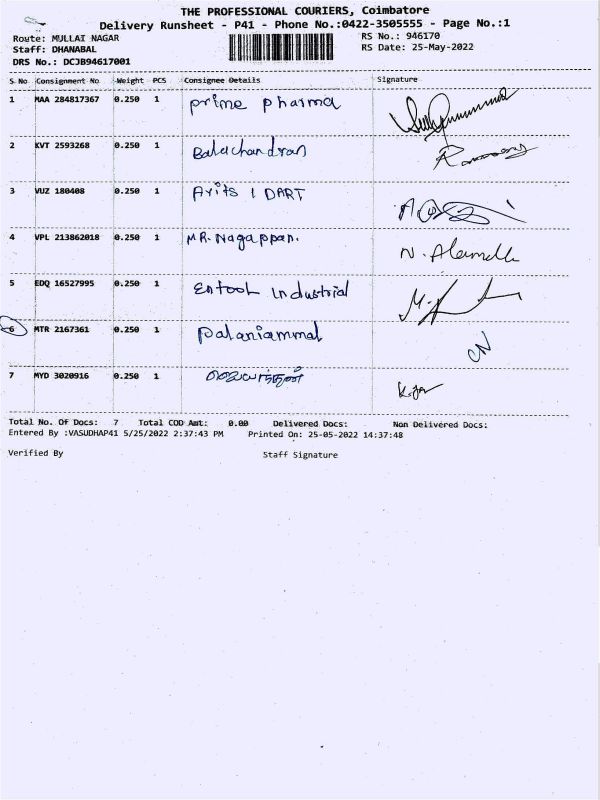 THE PROFESSIONAL COURIERS, Coimbatore
Delivery Runsheet - P41 - Phone No.:0422-3505555 - Page No.:1
Route: MULLAI NAGAR RS No.: 946170
Staff: DHANABAL RS Date: 25-May-2022
DRS No.: DCJB94617001
S No Consignment No Weight PCS Consignee Details Signature
1 MAA 284817367 0.250 1 prime pharma
2 KVT 2593268 0.250 1 Balachandran
3 VUZ 180408 0.250 1 Arits 1 DART
4 VPL 213862018 0.250 1 MR. Nagappan.
5 EDQ 16527995 0.250 1 Entool industrial
6 MTR 2167361 0.250 1 Palaniammal
7 MYD 3020916 0.250 1
Total No. Of Docs: 7 Total COD Amt: 0.00 Delivered Docs: Non Delivered Docs:
Entered By :VASUDHAP41 5/25/2022 2:37:43 PM Printed On: 25-05-2022 14:37:48
Verified By Staff Signature